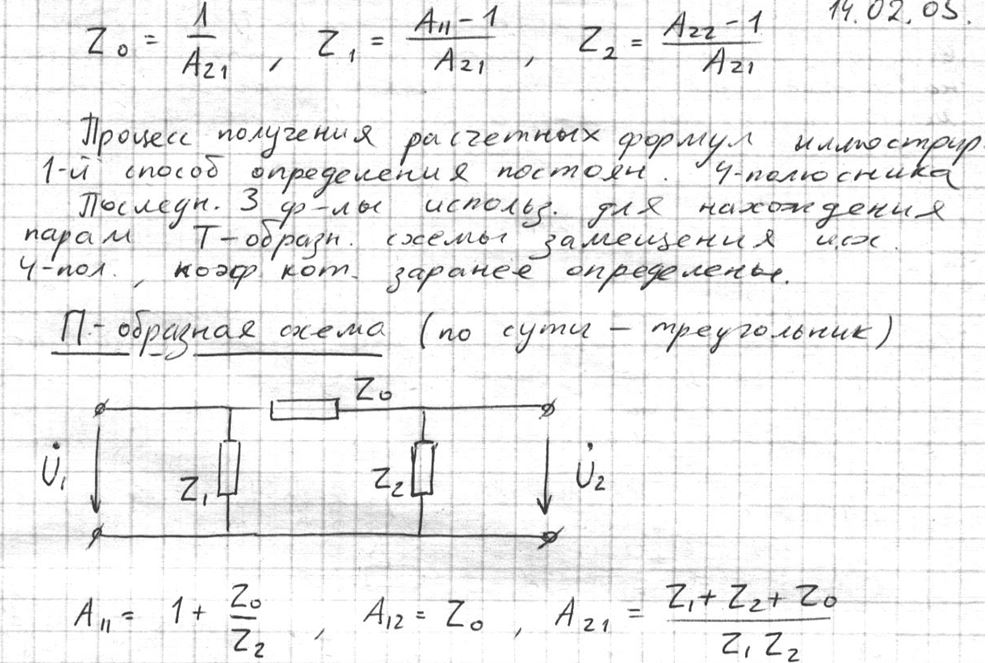 14.02.05.
Z₀ = 1/A₂₁ , Z₁ = (A₁₁ - 1)/A₂₁ , Z₂ = (A₂₂ - 1)/A₂₁
Процесс получения расчетных формул иллюстрир.
1-й способ определения постоян. 4-полюсника
Последн. 3 ф-лы использ. для нахождения
парам Т-образн. схемы замещения исх.
4-пол., коэф кот. заранее определены.
П-образная схема (по сути - треугольник)
Z₀
U̇₁ Z₁ Z₂ U̇₂
A₁₁ = 1 + Z₀/Z₂ , A₁₂ = Z₀ , A₂₁ = (Z₁ + Z₂ + Z₀)/(Z₁ Z₂)